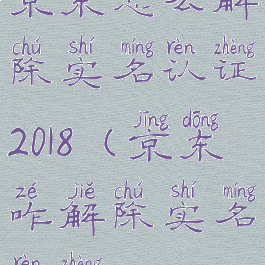 京东怎么解
chú shí míng rèn zhèng
除实名认证
jīng dōng
2018（京东
zé jiě chú shí míng
咋解除实名
rèn zhèng